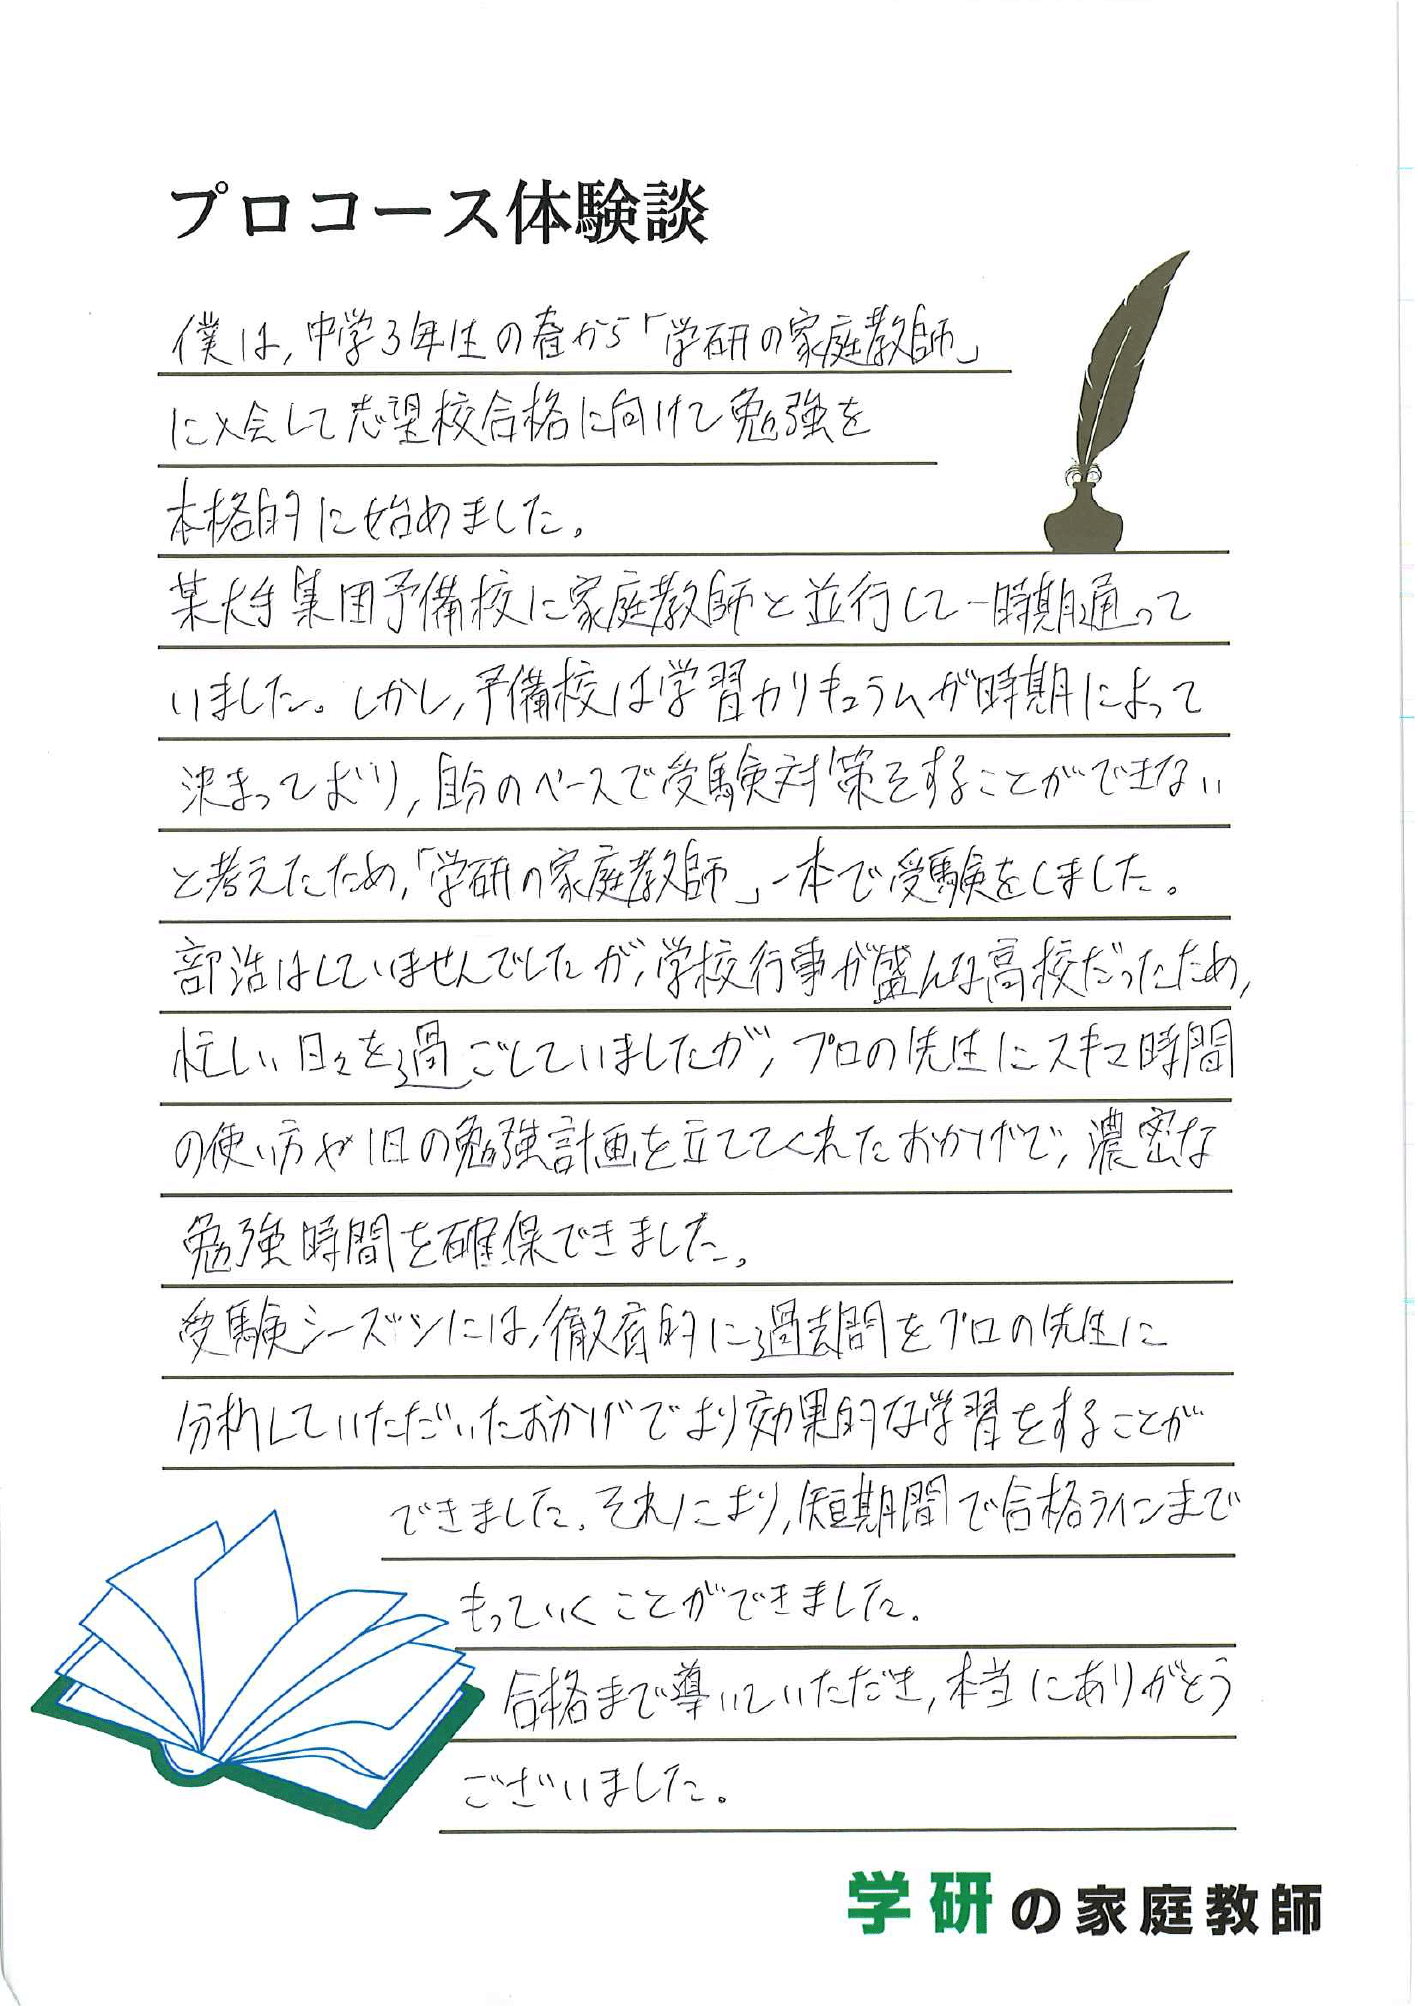 プロコース体験談
僕は,中学3年生の春から「学研の家庭教師」
に入会して志望校合格に向けて勉強を
本格的に始めました。
某大手集団予備校に家庭教師と並行して一時期通って
いました。しかし,予備校は学習カリキュラムが時期によって
決まっており,自分のペースで受験対策をすることができない
と考えたため,「学研の家庭教師」一本で受験をしました。
部活はしていませんでしたが,学校行事が盛んな高校だったため,
忙しい日々を過ごしていましたが,プロの先生にスキマ時間
の使い方や1日の勉強計画を立ててくれたおかげで,濃密な
勉強時間を確保できました。
受験シーズンには,徹底的に過去問をプロの先生に
分析していただいたおかげでより効果的な学習をすることが
できました。それにより,短期間で合格ラインまで
もっていくことができました。
合格まで導いていただき,本当にありがとう
ございました。
学研の家庭教師